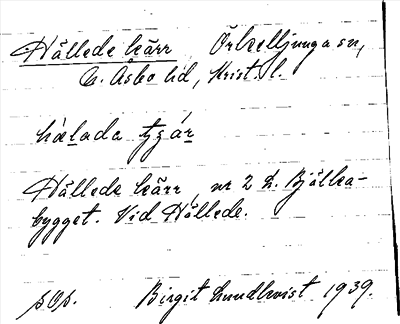 Hållede kärr Örkelljunga sn,
N. Åsbo hd, Krist. l.
hålada
Hållede kärr, nr 2 L. Bjälka-
bygget. Vid Hållede.
sOp. Birgit Lundkvist 1939.